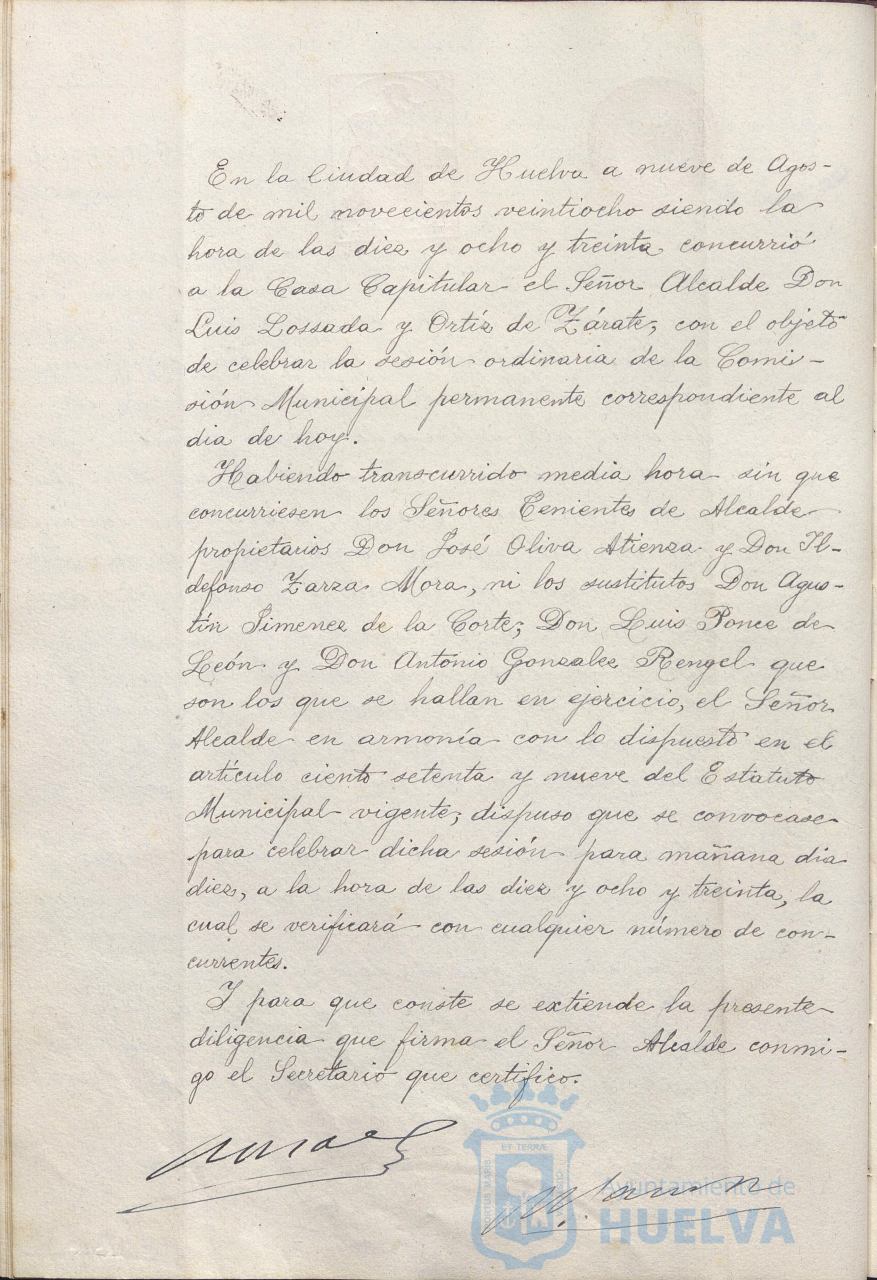 En la Ciudad de Huelva a nueve de Agos-
to de mil novecientos veintiocho siendo la
hora de las diez y ocho y treinta concurrió
a la Casa Capitular el Señor Alcalde Don
Luis Lossada y Ortíz de Zárate, con el objeto
de celebrar la sesión ordinaria de la Comi-
sión Municipal permanente correspondiente al
dia de hoy.
Habiendo transcurrido media hora sin que
concurriesen los Señores Tenientes de Alcalde
propietarios Don José Oliva Atienza y Don Il-
defonso Zarza Mora, ni los sustitutos Don Agus-
tín Jimenez de la Corte, Don Luis Ponce de
León y Don Antonio Gonzalez Rengel que
son los que se hallan en ejercicio, el Señor
Alcalde en armonía con lo dispuesto en el
artículo ciento setenta y nueve del Estatuto
Municipal vigente, dispuso que se convocase
para celebrar dicha sesión para mañana dia
diez, a la hora de las diez y ocho y treinta, la
cual se verificará con cualquier número de con-
currentes.
Y para que conste se extiende la presente
diligencia que firma el Señor Alcalde conmi-
go el Secretario que certifico.
ET TERRÆ
PORTUS MARIS
CUSTODIA
Ayuntamiento de
HUELVA